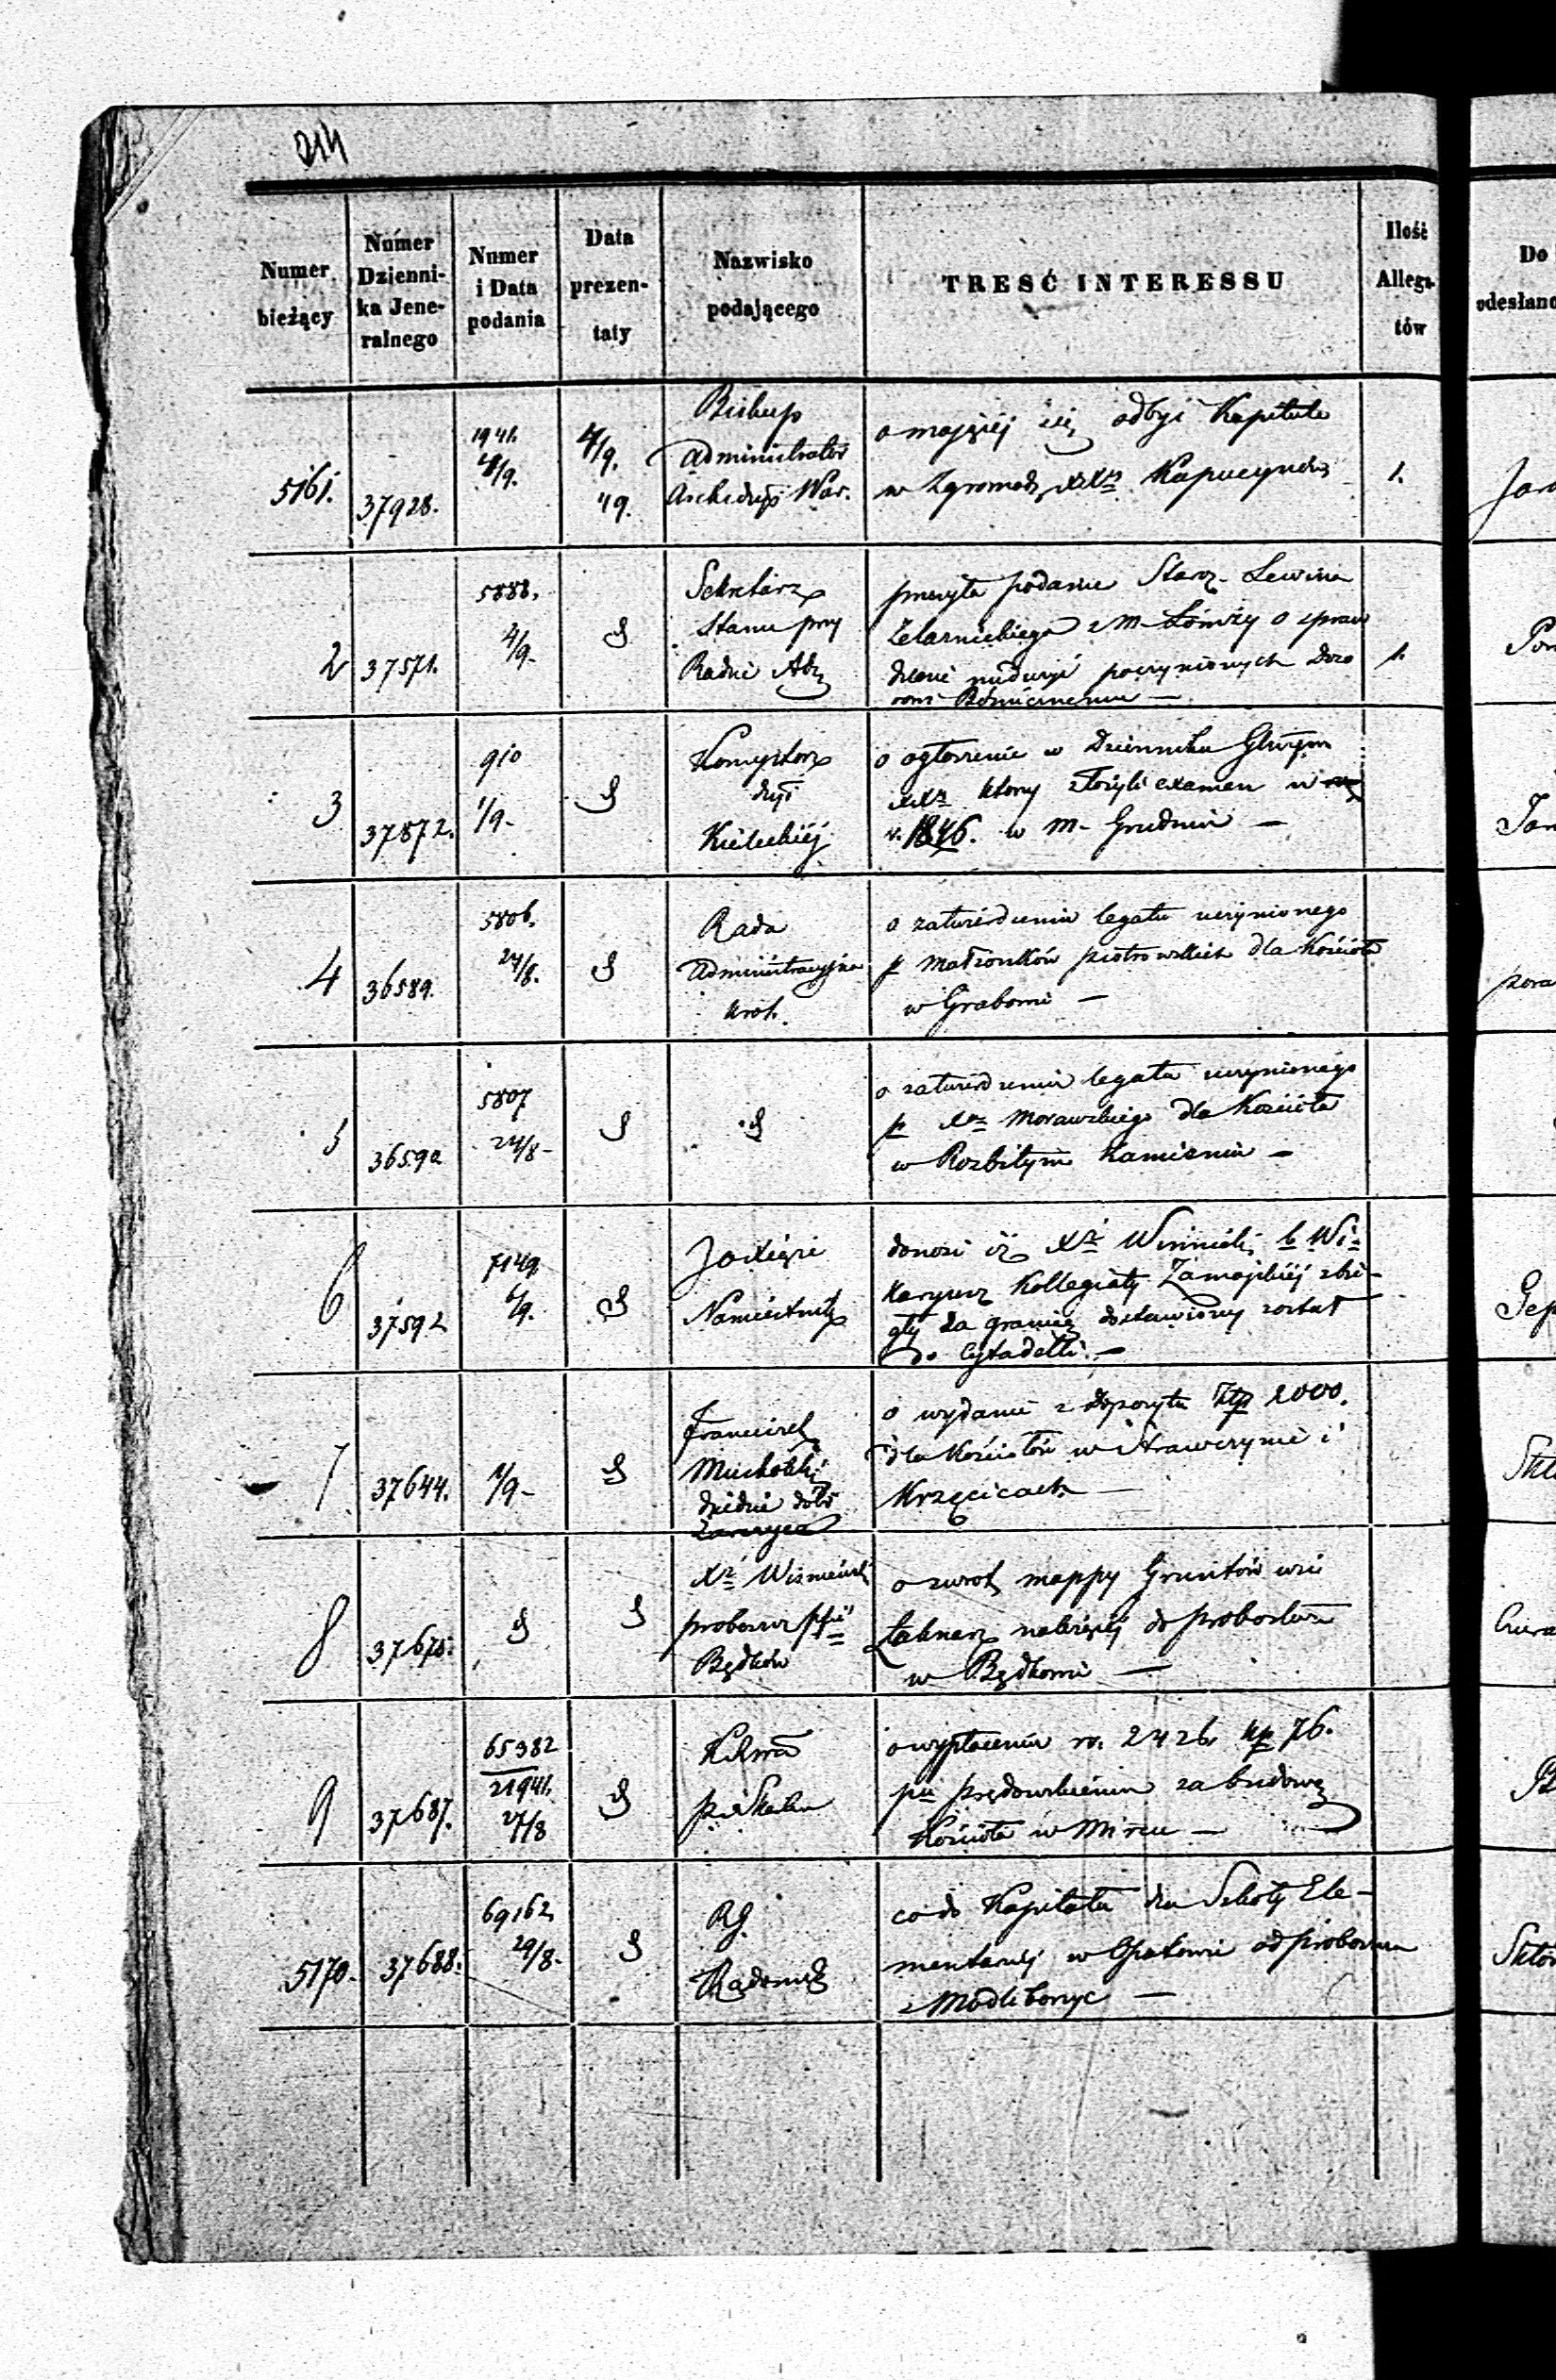 214
Numer bieżący
Numer Dzienni-
ka Jene-
ralnego
Numer i Data podania
Data prezen-
taty
Nazwisko podającego
TRESĆ INTERESSU
Ilość Allega-
tów
Do
odesłano
5161.
37928.
1941.
4/9.
4/9.
49.
Biskup
Administrator
Archidyi War.
o mającéj się odbyć Kapitule
w Zgromadz. XXży Kapucynów
1.
2
37571.
5888.
2/9.
Sekretarz
Stanu przy
Radzie Adm
przesyła podanie Staroz. Lewina
Zelarnickiego z M. Łomży o spraw
dzenie nadużyć poczynionych Dozo
rowi Bóżniczemu —
1.
3
37872.
910
1/9-
Konsystorz
dyi
Kieleckiéj
o ogłoszenie w Dzienniku
XXży którzy złożyli examen w
r. 1846. w M. Grudniu —
4
36589.
5806.
24/8.
Rada
Administracyjna
Krol.
o zatwierdzenie legatu uczynionego
p Małżonków Piotrowskich dla Kościoła
w Grabowie —
5
36590
5807
24/8-
o zatwierdzenie legatu uczynionego
p Xa Morawskiego dla Kościoła
w Rozbitym Kamieniu —
6
37592
7149.
6/9.
JO Xięże
Namiestnik
donosi iż Xż Winnicki b Wi-
karyusz Kollegiaty Zamojskiéj zbie-
gły za granicę dostawiony został
do Cytadelli. —
7
37644.
1/9-
Franciszek
Michalski
dziedzic dóbr
o wydanie z Depozytu Złp 2000.
dla Kościołów w Strawczynie i
Krzęcicach —
8
37675.
Xż Wiśniewski
proboszcz pfii
Będków
o zwrot mappy Gruntów wsi
należącéj do probostwa
w Będkowie —
9
37687.
65382
21941.
27/8
K R
p i Skarbu
o wypłacenie rs. 2426 kp 76.
pu Prędowskiemu za budowę
Kościoła w Mircu —
5170.
37688.
69162
29/8.
RG.
Radomski
co do Kapitału dla Szkoły Ele-
mentarnéj w Opatowie od proboszcza
z Modliborzyc —